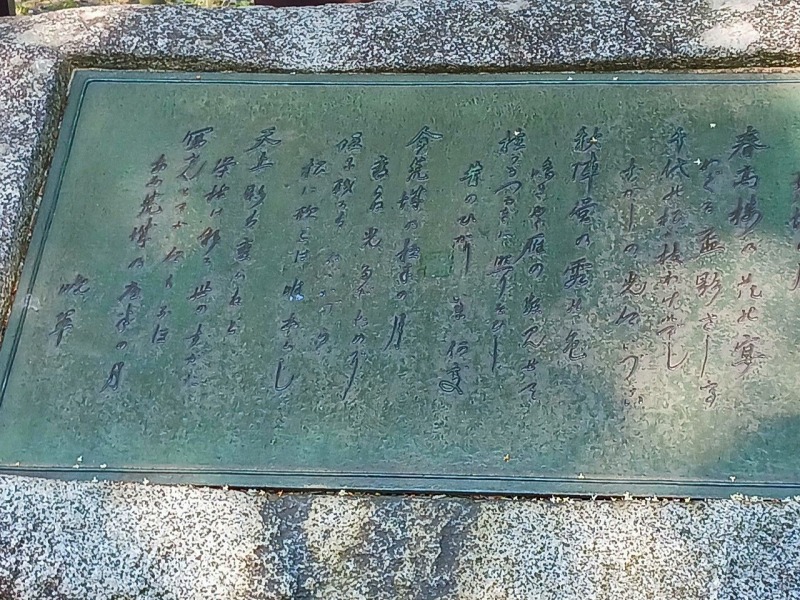 城の月
春高楼の花の宴
めぐる盃影さして
千代の松が枝わけ出でし
むかしの光今いづこ
秋陣営の霜の色
鳴き行く雁の数見せて
植うるつるぎに照りそひし
昔のひかり今何處
今荒城の夜半の月
変らぬ光たがためぞ
垣に残るはただかづら
松に歌ふは唯あらし
天上影は変らねど
栄枯は移る世の姿
写さんとてか今もなほ
ああ荒城の夜半の月
晩翠